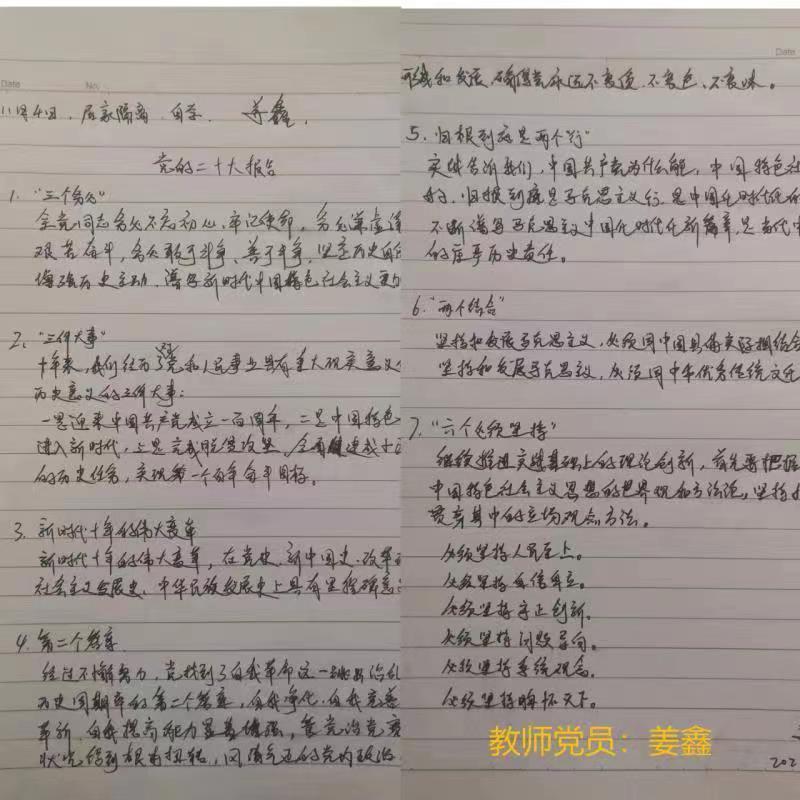 Date
No.
11月4日，居家隔离，自学. 姜鑫.
党的二十大报告
1. "三个务必"
全党同志务必不忘初心、牢记使命，务必谦虚谨
艰苦奋斗，务必敢于斗争、善于斗争，坚定历史自信
增强历史主动，谱写新时代中国特色社会主义更
2. "三件大事"
十年来，我们经历了党和人民事业具有重大现实意义
历史意义的三件大事:
一是迎来中国共产党成立一百周年，二是中国特色
进入新时代，三是完成脱贫攻坚、全面建成小
的历史任务，实现第一个百年奋斗目标。
3. 新时代十年的伟大变革
新时代十年的伟大变革，在党史、新中国史、改革
社会主义发展史、中华民族发展史上具有里程碑意
4. 第二个答案
经过不懈努力，党找到了自我革命这一跳出治乱
历史周期率的第二个答案，自我净化、自我完善
革新、自我提高能力显著增强，管党治党宽
状况得到根本扭转，风清气正的党内政治
Date
形成和发展，确保党永远不变质、不变色、不变味。
5. "归根到底是两个行"
实践告诉我们，中国共产党为什么能，中国特色社
的，归根到底是马克思主义行，是中国化时代化的
不断谱写马克思主义中国化时代化新篇章，是当代中
的庄严历史责任。
6. "两个结合"
坚持和发展马克思主义，必须同中国具体实际相结合
坚持和发展马克思主义，必须同中华优秀传统文化
7. "六个必须坚持"
继续推进实践基础上的理论创新，首先要把握
中国特色社会主义思想的世界观和方法论，坚持
贯穿其中的立场观点方法。
必须坚持人民至上。
必须坚持自信自立。
必须坚持守正创新。
必须坚持问题导向。
必须坚持系统观念。
必须坚持胸怀天下。
教师党员：姜鑫
202